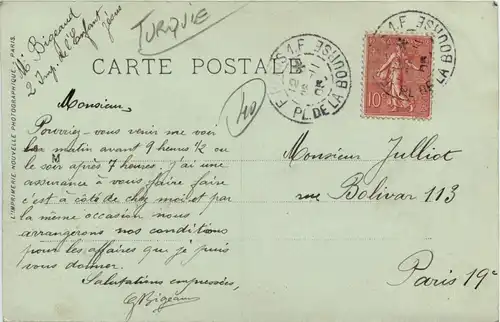 Mr Bigeard
2 Imp. de l'Enfant
Jésus
TURQUIE
CARTE POSTALE
PL. DE LA BOURSE
PL. DE LA BOURSE
10
40
L'IMPRIMERIE NOUVELLE PHOTOGRAPHIQUE - PARIS.
Monsieur
Pouvriez-vous venir me voir
un matin avant 9 heures 1/2 ou
le soir après 7 heures. J'ai une
M
assurance à vous faire faire
c'est à côté de chez moi et par
la même occasion nous
arrangerons nos conditions
pour les affaires que je puis
vous donner.
Salutations empressées,
Bigeard
Monsieur Julliot
rue Bolivar 113
Paris 19e